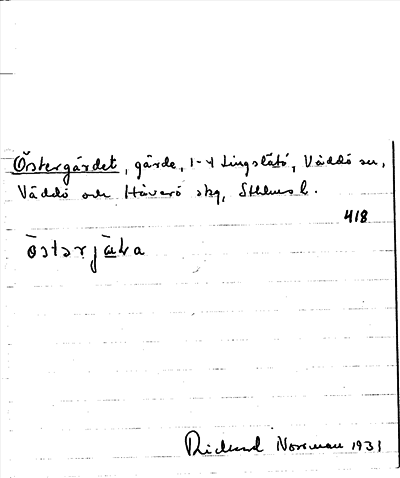 Östergärdet, gärde, 1-4 Lingslätö, Väddö sn,
Väddö och Häverö skg, Sthlms l.
418
Richard Norrman 1931